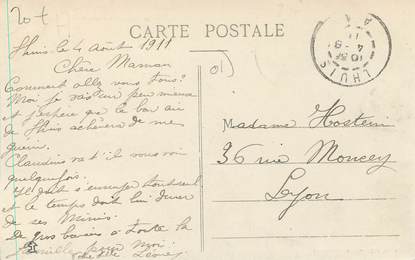 20f
CARTE POSTALE
Lhuis le 4 Août 1911
Chère Maman
Comment allez vous tous?
Moi je vais un peu mieux
et j'espère que le bon air
de Lhuis achèvera de me
guérir.
Claudius va t'il vous voir
quelquefois.
Il doit s'ennuyer tout seul
et le temps doit lui durer
de ses Minis.
De gros baisers à toute la
famille pour moi.
LHUIS
4 - 8
11
Madame Hostein
36 rue Moncey
Lyon